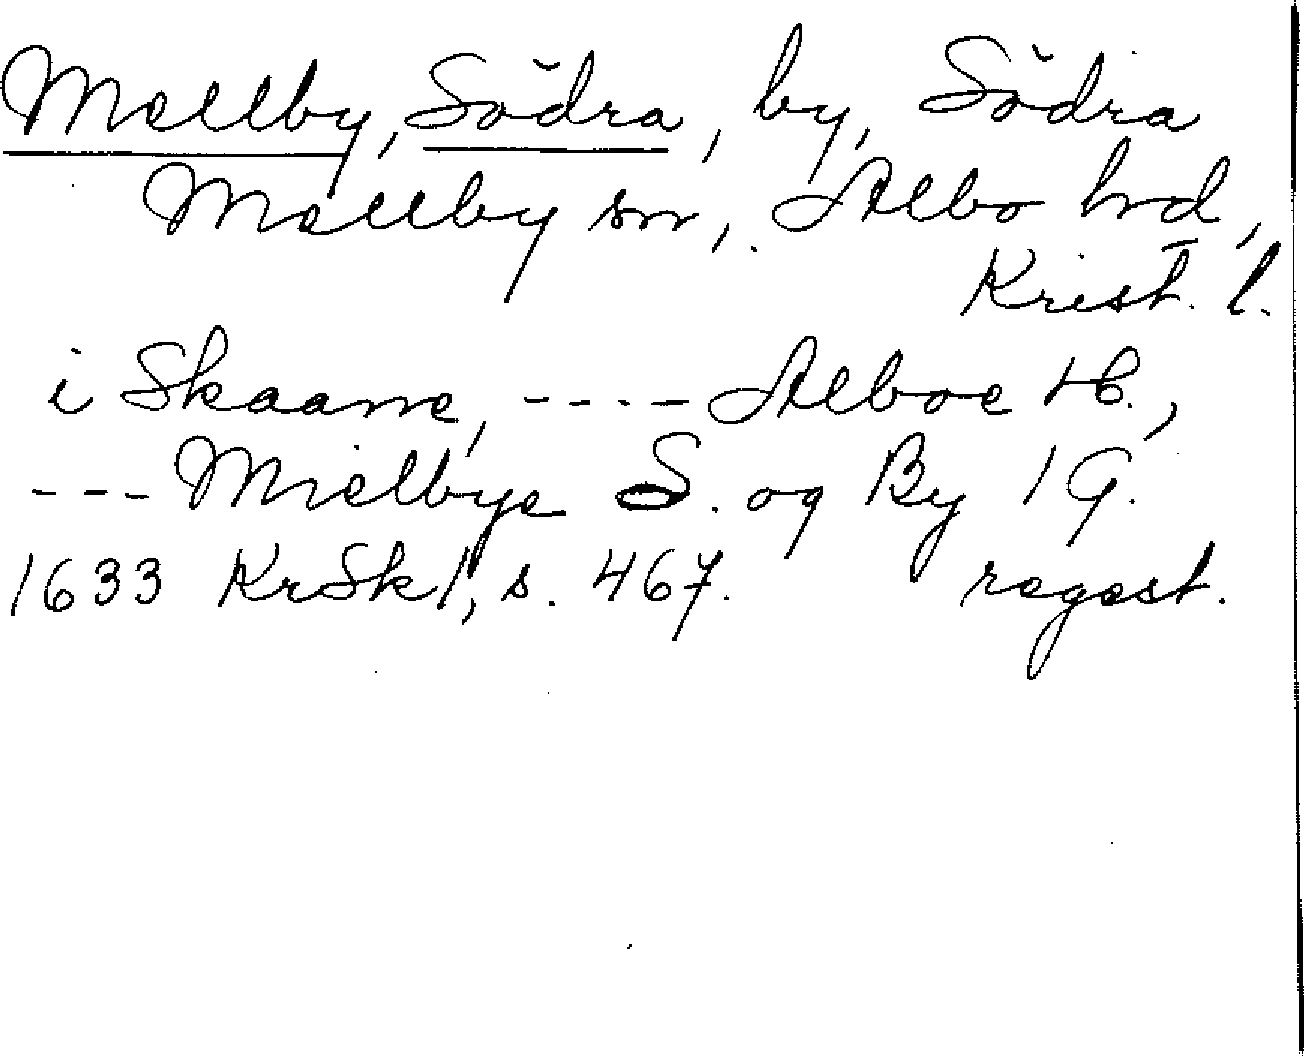 Mellby, Södra, by, Södra
Mellby sn, Albo hd,
Krist. l.
i Skaane, ---- Alboe H.,
--- Mielbye S. og By 1 G.
1633 KrSk 1, s. 467. regest.